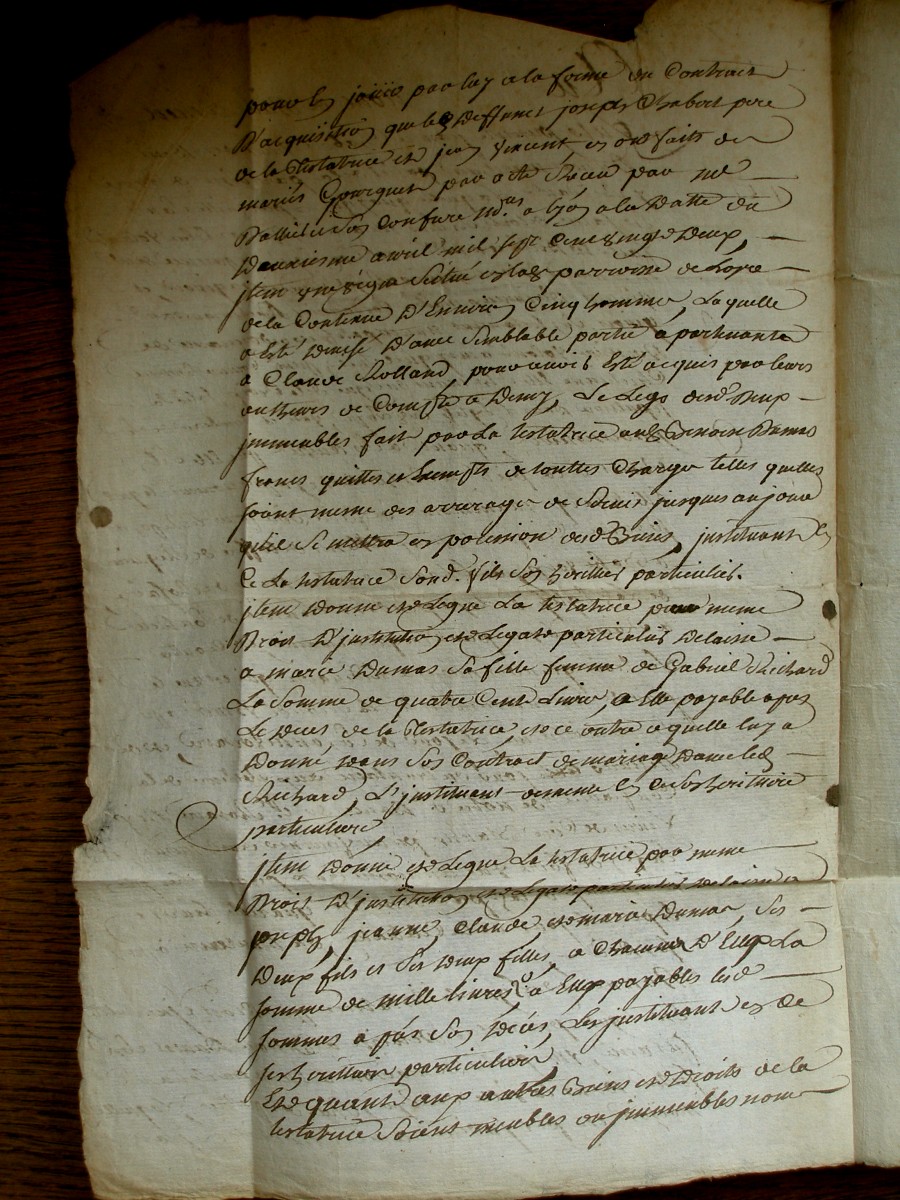 pour les jouir par luy a la forme du Contract
D'acquisition que led. Deffunct joseph Chabert pere
de la Testatrice et jean vincent en ont faits des
mariés par acte Recu par me
et son Confrere Nores a lyon a la Datte du
Deuxiesme avril mil sept Cent vingt Deux,
jtem une vigne Scitué en lad. parroisse de
de la Contenue D'Environ Cinq hommes, Laquelle
a Esté Demise D'avec Semblable partie apartenante
a Claude Rolland, pour avoir Esté acquis par leurs
autheurs de Compte a Demy, Le Legs desd. Deux
jmmeubles fait par La testatrice aud. Benoist Dumas
francs quittes et Exempts de touttes Charges telles quelles
soient meme des arrerages de Servis jusques au jour
qu'il Se mettra en possession desd. Biens, jnstituant en
Ce La testatrice Sond. fils Son heritier particulier.
jtem Donne et Legue La testatrice par meme
Droit D'jnstitution et Legat particulier Delaisse
a marie Dumas Sa fille femme de Gabriel Richard
La Somme de quatre Cent Livres, a Elle payable apres
Le Deces de la Testatrice, et ce outre ce quelle luy a
Donné dans Son Contract de mariage Avec led.
Richard, L'jnstituant de meme en ce Son heritiere
particuliere,
jtem Donne et Legue La testatrice par meme
Droit D'jnstitution et Legat particulier delaisse a
joseph, jeanne, Claude et marie Dumas, Ses
Deux fils et Ses Deux filles, a Chacun D'Eux La
somme de mille livres, a Eux payables lesd.
sommes apres Son Decés, Les jnstituant en ce
ses heritiers particuliers
Et quant aux autres Biens et Droits de la
testatrice Soient meubles ou jmmeubles noms